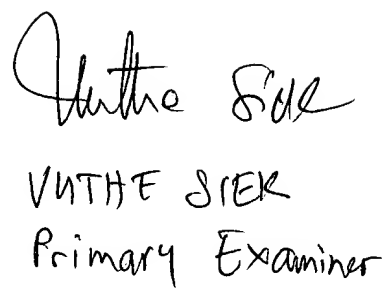 Vuthe Siek
VUTHE SIEK
Primary Examiner